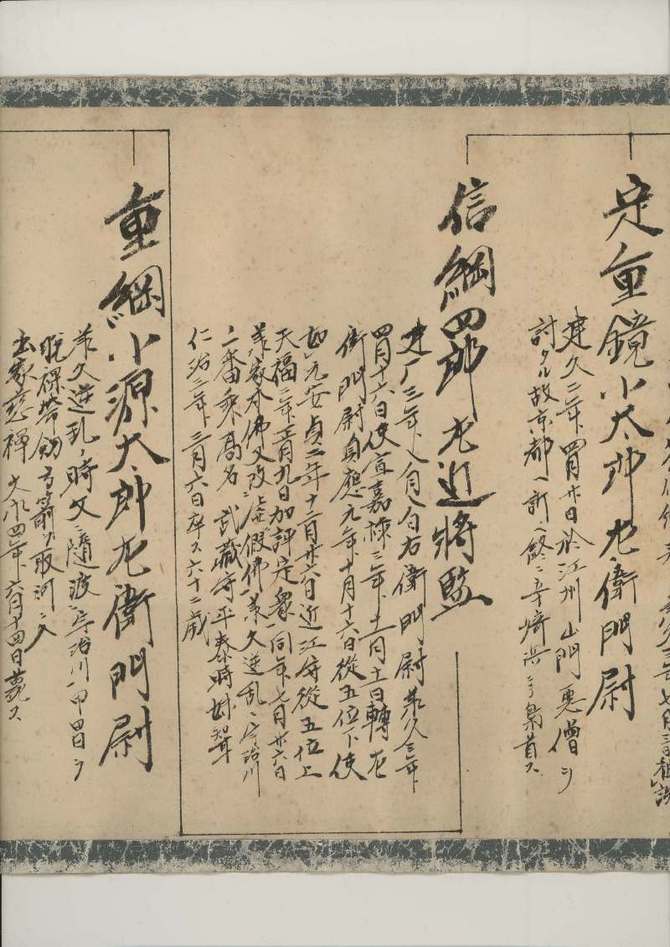 定重鏡小太郎左衛門尉
建久二年四月廿日於江州山門悪僧ヲ
討タル故京都ヘ訴ヘ終ニ辛崎浜ニテ梟首ス
信綱四郎左近将監
建仁三年八月八日右衛門尉承久三年
四月十六日使宣嘉禄三年十二月十一日転左
衛門尉貞應元年十月十六日従五位下使
如元安貞二年十二月廿六日近江守従五位上
天福二年正月九日加評定衆同年七月廿六日
出家本佛又改虚假佛承久逆乱ニ宇治川
一番乗高名武蔵守平泰時妹聟
仁治三年三月六日卒ス六十二歳
重綱小源太郎左衛門尉
承久逆乱ノ時父ニ随渡ニ宇治川甲冑ヲ
脱裸帯剣弓箭ヲ取河ニ入
出家慈禅文永四年六月十四日薨ス